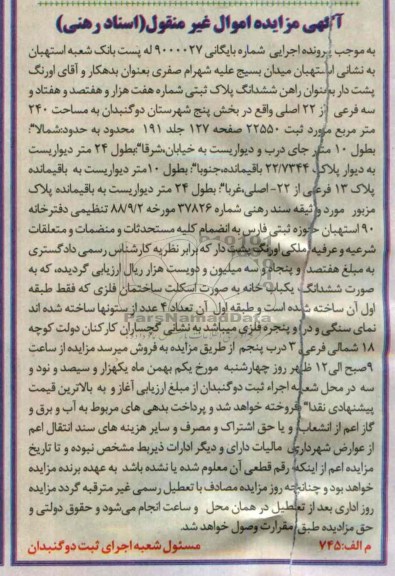 آگهی مزایده اموال غیر منقول(اسناد رهنی)
به موجب پرونده اجرایی شماره بایگانی ۹۰۰۰۰۲۷ له پست بانک شعبه استهبان
به نشانی استهبان میدان بسیج علیه شهرام صفری بعنوان بدهکار و آقای اورنگ
پشت دار بعنوان راهن ششدانگ پلاک ثبتی شماره هفت هزار و هفتصد و هفتاد و
سه فرعی از ۲۲ اصلی واقع در بخش پنج شهرستان دوگنبدان به مساحت ۲۴۰
متر مربع مورد ثبت ۲۲۵۵۰ صفحه ۱۲۷ جلد ۱۹۱ محدود به حدود:شمالا":
بطول ۱۰ متر جای درب و دیواریست به خیابان،شرقا":بطول ۲۴ متر دیواریست
به دیوار پلاک ۲۲/۷۳۴۴ باقیمانده،جنوبا": بطول ۱۰متر دیواریست به باقیمانده
پلاک ۱۳ فرعی از ۲۲- اصلی،غربا": بطول ۲۴ متر دیواریست به باقیمانده پلاک
مزبور مورد وثیقه سند رهنی شماره ۳۷۸۲۶ مورخه ۸۸/۹/۲ تنظیمی دفترخانه
۹۰ استهبان حوزه ثبتی فارس به انضمام کلیه مستحدثات و منضمات و متعلقات
شرعیه و عرفیه ملکی اورنگ پشت دار که برابر نظریه کارشناس رسمی دادگستری
به مبلغ هفتصد و پنجاه و سه میلیون و دویست هزار ریال ارزیابی گردیده، که به
صورت ششدانگ یکباب خانه به صورت اسکلت ساختمان فلزی که فقط طبقه
اول آن ساخته شده است و طبقه اول آن تعداد ۴ عدد از ستونها ساخته شده اند
نمای سنگی و در و پنجره فلزی میباشد به نشانی گچساران کارکنان دولت کوچه
۱۸ شمالی فرعی ۳ درب پنجم از طریق مزایده به فروش میرسد مزایده از ساعت
۹صبح الی۱۲ ظهر روز چهارشنبه مورخ یکم بهمن ماه یکهزار و سیصد و نود و
سه در محل شعبه اجراء ثبت دوگنبدان از مبلغ ارزیابی آغاز و به بالاترین قیمت
پیشنهادی نقدا" فروخته خواهد شد و پرداخت بدهی های مربوط به آب و برق و
گاز اعم از انشعاب و یا حق اشتراک و مصرف و سایر هزینه های سند انتقال اعم
از عوارض شهرداری مالیات دارای و دیگر ادارات ذیربط مشخص نبوده و تا تاریخ
مزایده اعم از اینکه رقم قطعی آن معلوم شده یا نشده باشد به عهده برنده مزایده
خواهد بود و چنانچه روز مزایده مصادف با تعطیل رسمی غیر مترقبه گردد مزایده
روز اداری بعد از تعطیل در همان محل و ساعت انجام می‌شود و حقوق دولتی و
حق مزایده طبق مقرارت وصول خواهد شد.
م الف:۷۴۵ مسئول شعبه اجرای ثبت دوگنبدان
ParsNamadData